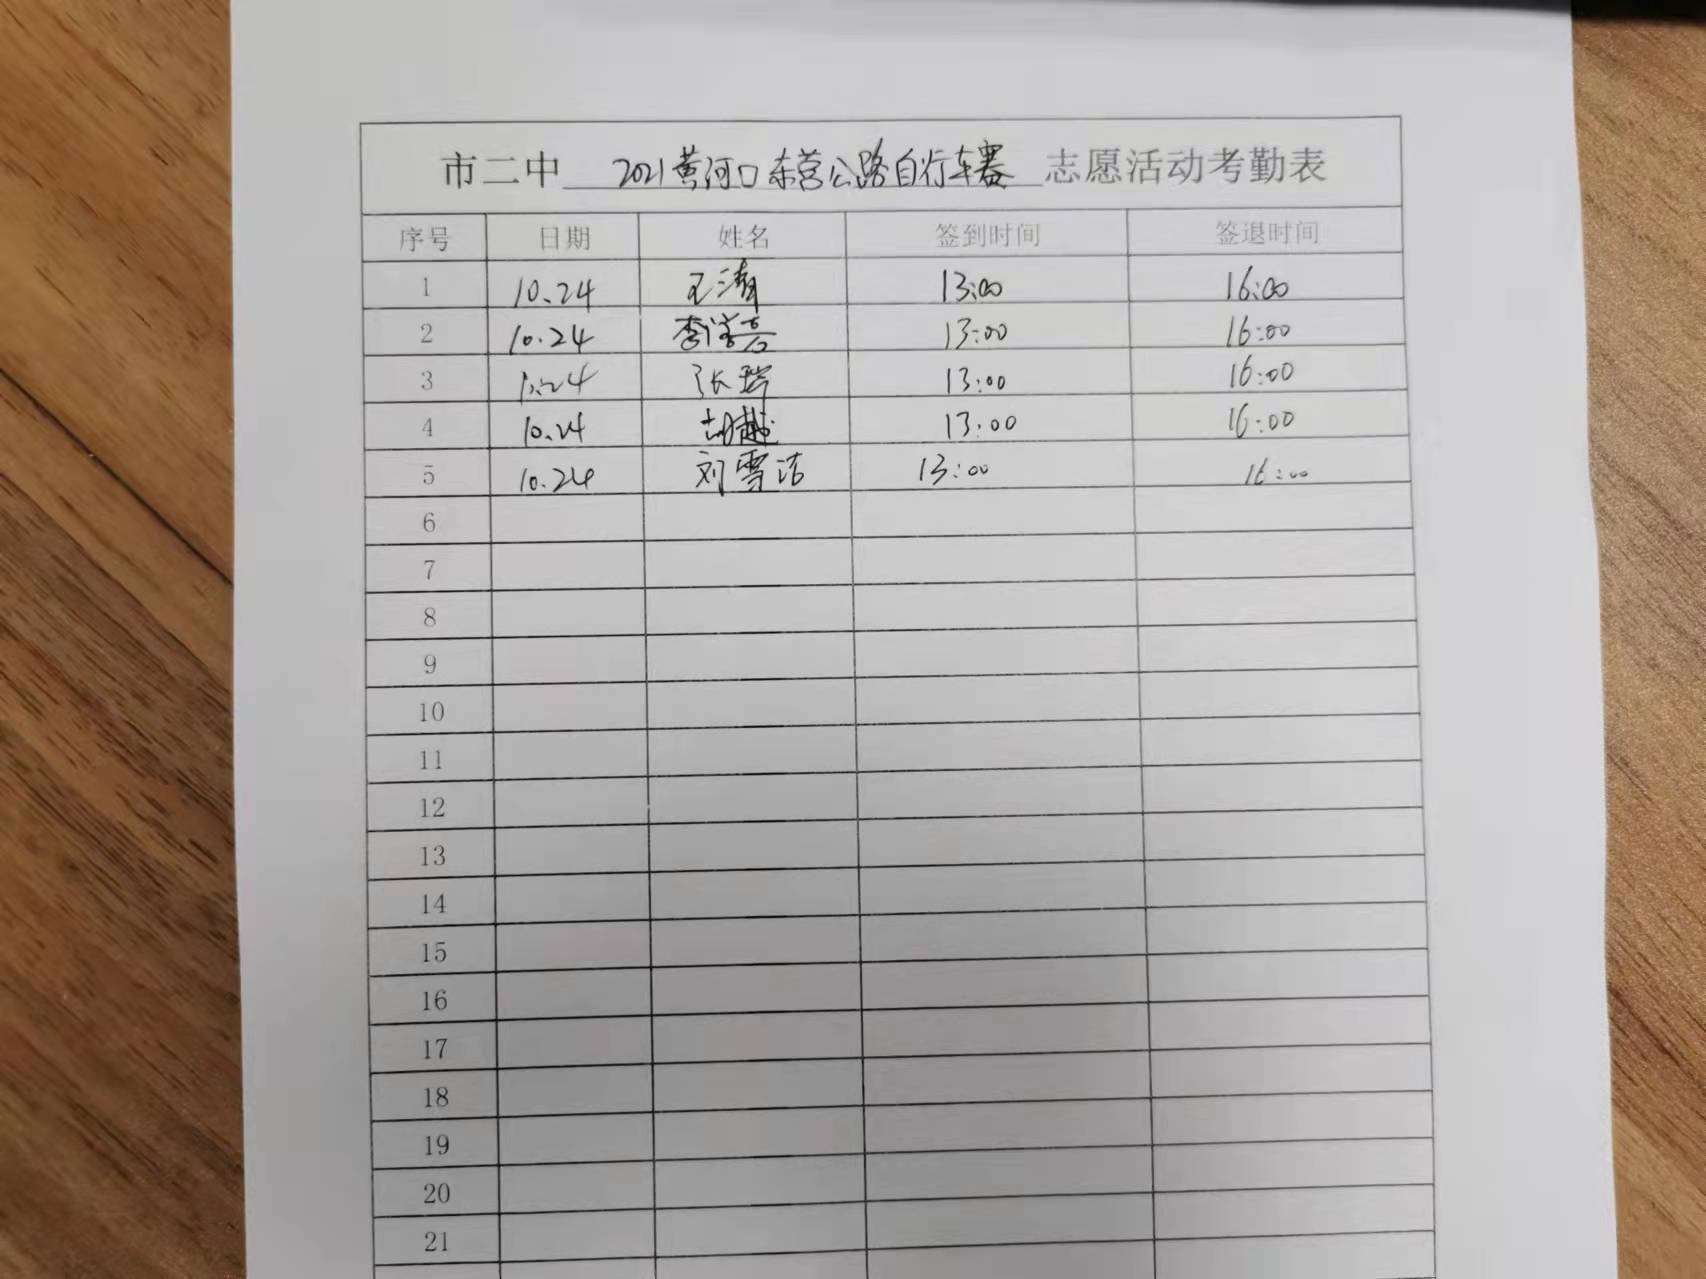 市二中 2021黄河口东营公路自行车赛 志愿活动考勤表
序号 日期 姓名 签到时间 签退时间
1 10.24 王清 13:00 16:00
2 10.24 李 13:00 16:00
3 10.24 张瑞 13:00 16:00
4 10.24 胡越 13:00 16:00
5 10.24 刘雪洁 13:00 16:00
6
7
8
9
10
11
12
13
14
15
16
17
18
19
20
21